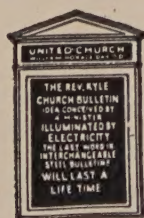 UNITED CHURCH
THE REV. KYLE
CHURCH BULLETIN
IDEA CONCEIVED BY
A MINISTER
ILLUMINATED BY
ELECTRICITY
THE LAST WORD IN
INTERCHANGEABLE
STEEL BULLETINS
WILL LAST A
LIFE TIME